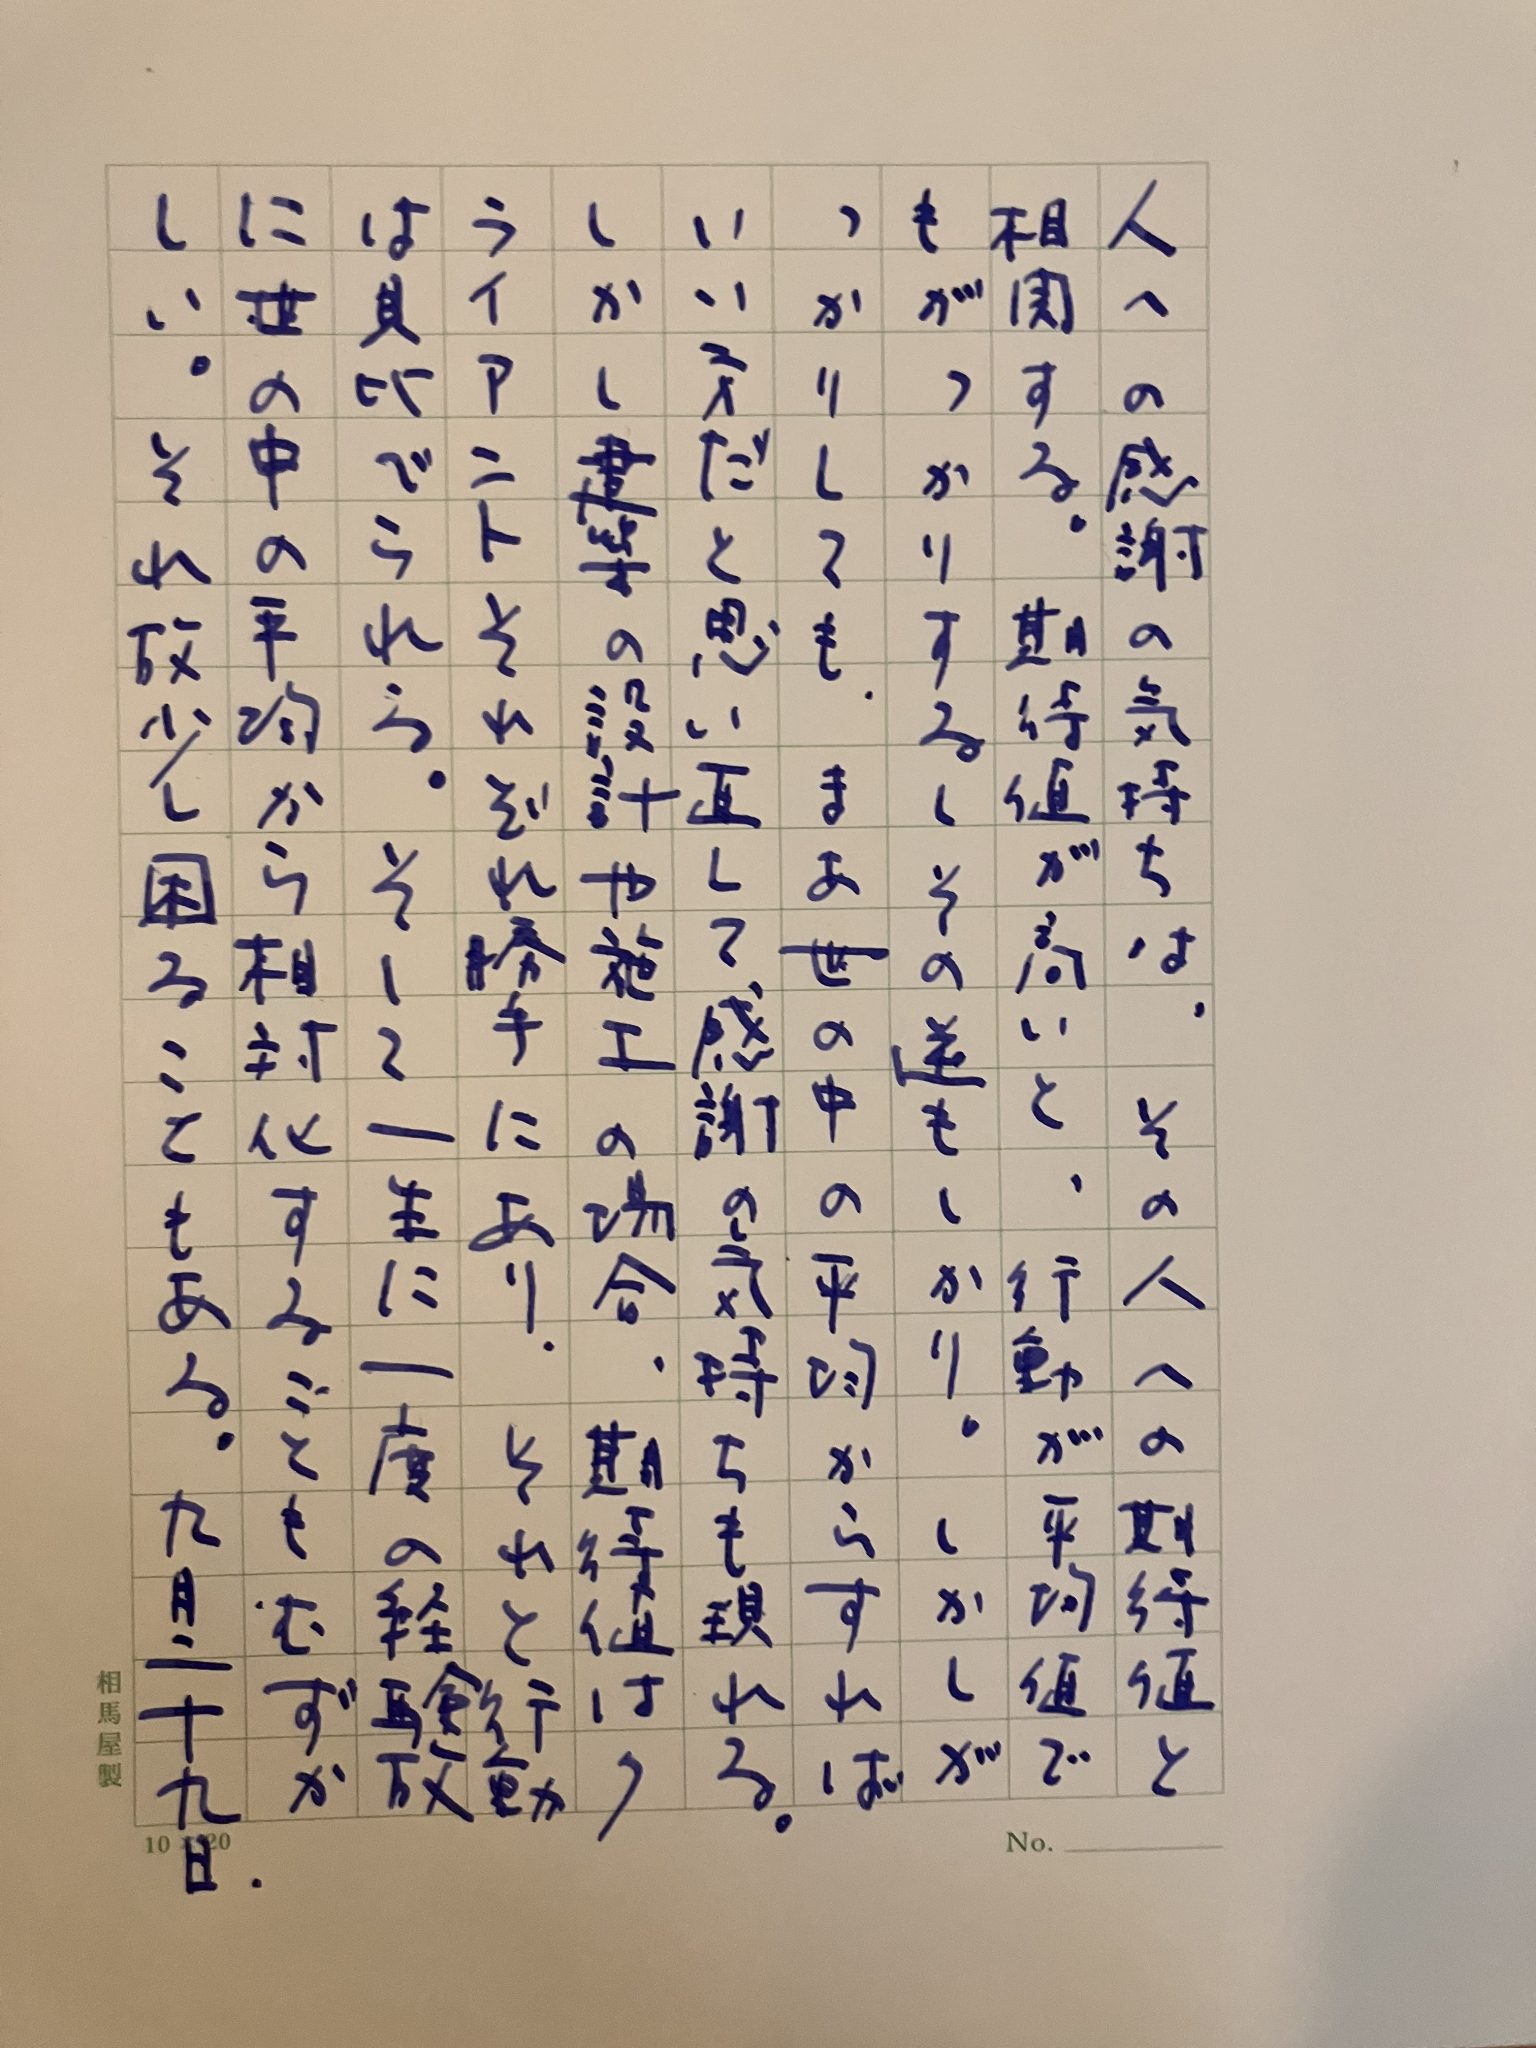 人への感謝の気持ちは、その人への期待値と
相関する。期待値が高いと、行動が平均値で
もがっかりするしその逆もしかり。しかしが
っかりしても、まあ世の中の平均からすれば
いい方だと思い直して、感謝の気持ちも現れる。
しかし建築の設計や施工の場合、期待値はク
ライアントそれぞれ勝手にあり、それと行動
は見比べられる。そして一生に一度の経験故
に世の中の平均から相対化することもむずか
しい。それ故少し困ることもある。九月二十九日.
相馬屋製
10×20
No.